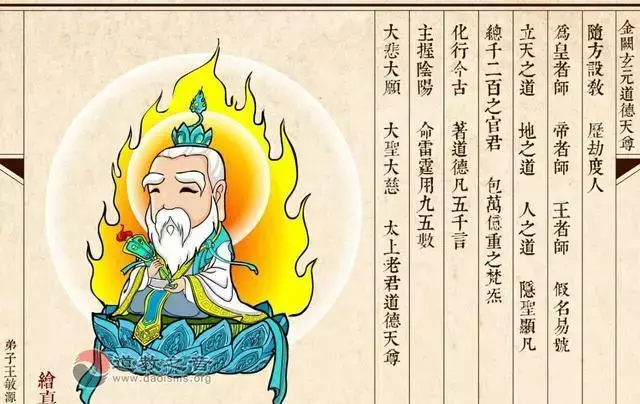 金闕玄元道德天尊
隨方設敎 歷劫度人
爲皇者師 帝者師 王者師 假名易號
立天之道 地之道 人之道 隱聖顯凡
總千二百之官君 包萬億重之梵炁
化行今古 著道德凡五千言
主握陰陽 命雷霆用九五數
大悲大願 大聖大慈 太上老君道德天尊
道教之音
www.daoisms.org
繪
弟子王敏源